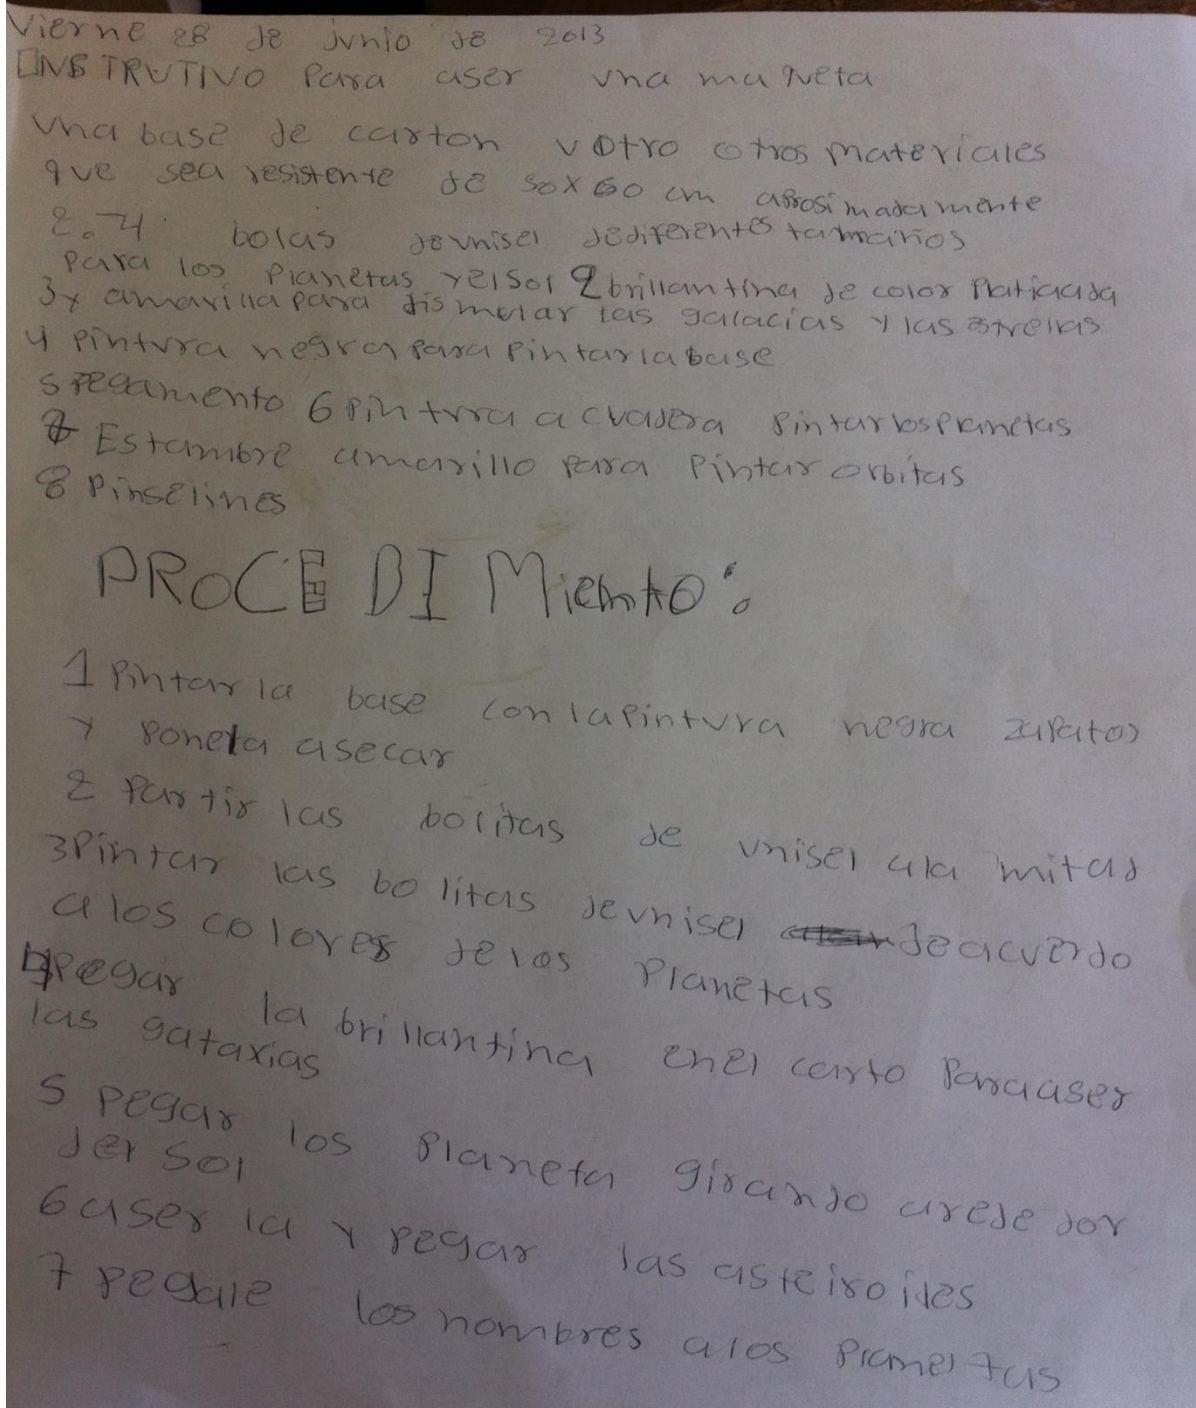 Vierne 28 de junio de 2013
INSTRUTIVO para aser una maqueta
una base de carton u otro otros materiales
que sea resistente de 50x60 cm aprosimadamente
2. 4. bolas deunisel dediferentes tamaños
para los planetas yelsol 2 brillantina de color platiada
3y amarilla para dismular las galacias y las strellas
4 pintura negra para pintarlabase
5 pegamento 6 pintrra acuadera pintarlosplanetas
7 Estambre amarillo para pintar orbitas
8 pinselines
PROCEDIMiento:
1 pintar la base conlapintura negra zapatos
y ponela asecar
2 partir las bolitas de unisel ala mitad
3Pintar las bolitas deunisel deacuerdo
alos colores delos planetas
4pegar la brillantina enel carto paraaser
las gataxias
5 pegar los planeta girando arededor
del sol
6 aser la y pegar las asteiroides
7 pegale los nombres alos planetas